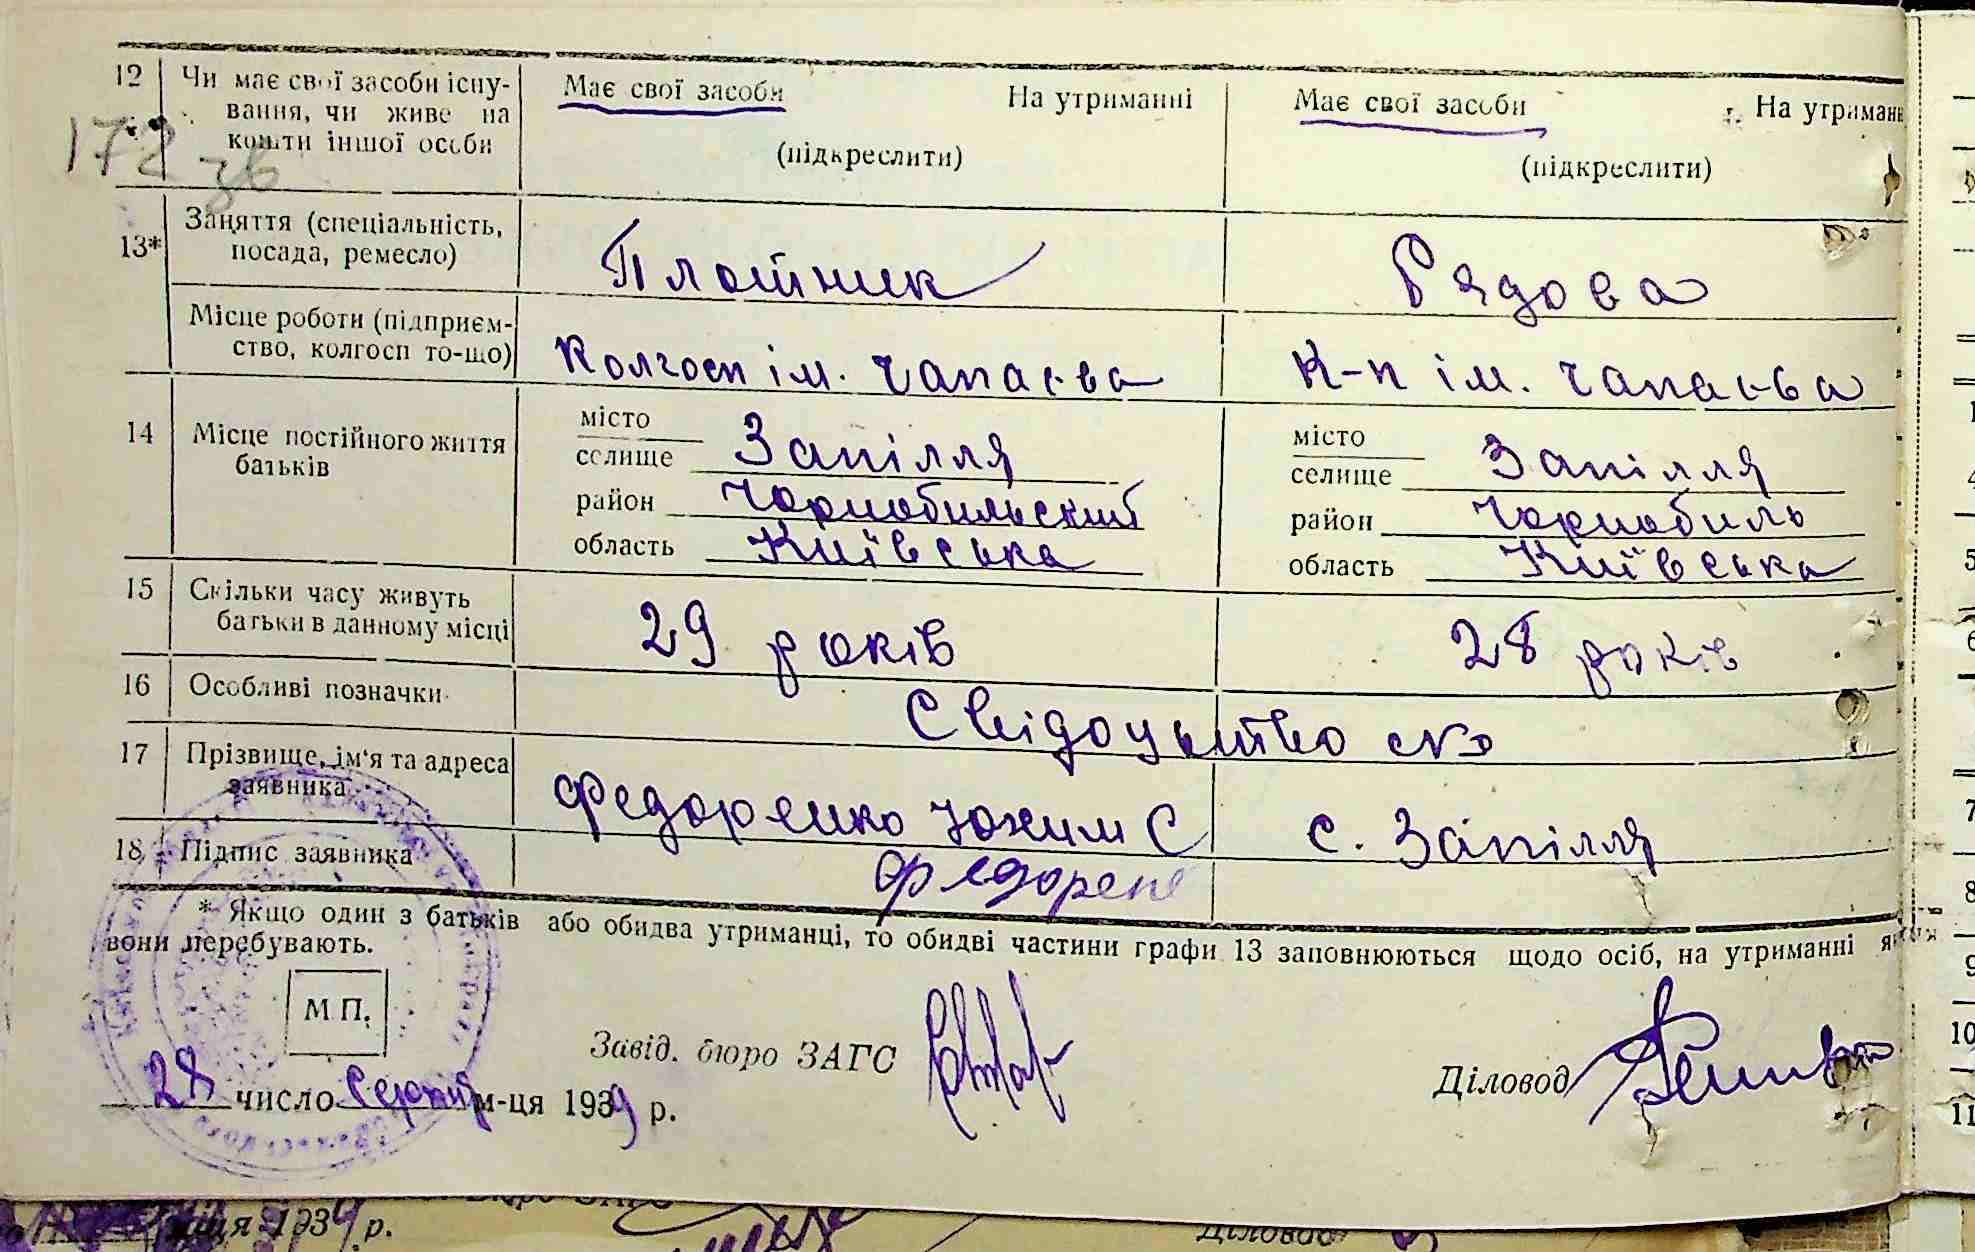 12 Чи має свої засоби існу-
вання, чи живе на
кошти іншої особи
Має свої засоби На утриманні Має свої засоби На утриманн
(підкреслити) (підкреслити)
172 зв
13* Заняття (спеціальність,
посада, ремесло)
Плотник Рядова
Місце роботи (підприєм-
ство, колгосп то-що)
Колгосп ім. Чапаєва К-п ім. Чапаєва
14 Місце постійного життя
батьків
місто
селище Запілля
район Чорнобильский
область Київська
місто
селище Запілля
район Чорнобиль
область Київська
15 Скільки часу живуть
батьки в данному місці
29 років 28 років
16 Особливі позначки
Свідоцьтво №
17 Прізвище, ім'я та адреса
заявника
Федоренко Юхим С с. Запілля
18 Підпис заявника
Федорен
* Якщо один з батьків або обидва утриманці, то обидві частини графи 13 заповнюються щодо осіб, на утриманні яких
вони перебувають.
М П.
Завід. бюро ЗАГС
Діловод
28 число Серпня м-ця 1939 р.
1
4
5
6
7
8
9
10
11
ця 1934 р.
Діловод